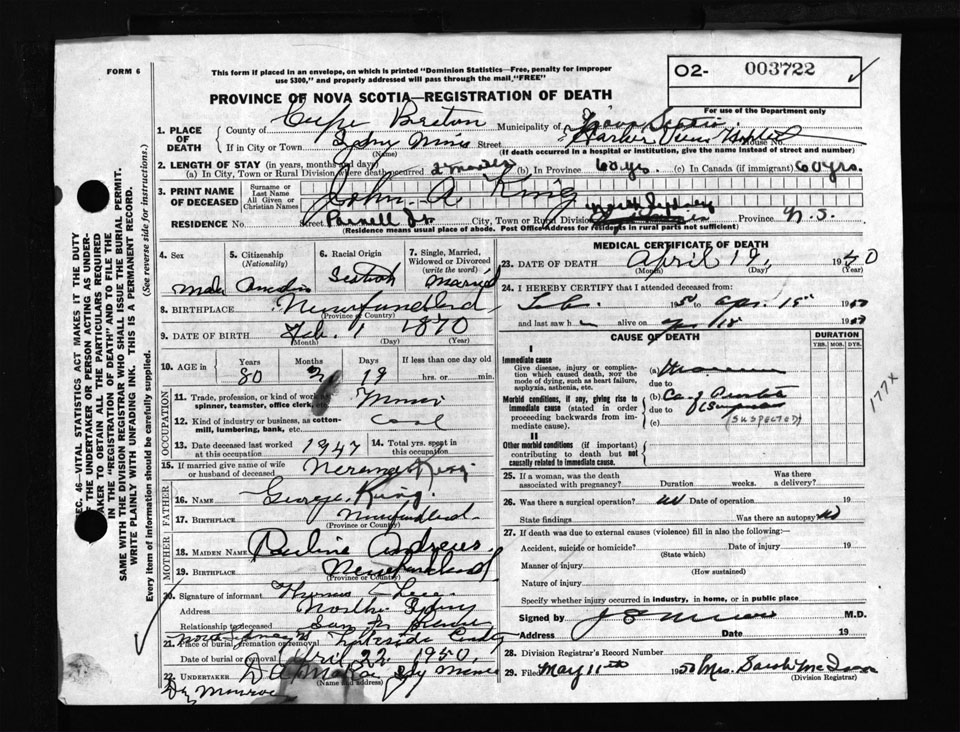 FORM 6
This form if placed in an envelope, on which is printed "Dominion Statistics—Free, penalty for improper
use $300," and properly addressed will pass through the mail, "FREE"
O2- 003722
For use of the Department only
PROVINCE OF NOVA SCOTIA—REGISTRATION OF DEATH
1. PLACE OF DEATH
County of Cape Breton Municipality of Nova Scotia
If in City or Town Sydney Mines Street Harbor View Hospital House No.
(Name) (If death occurred in a hospital or institution, give the name instead of street and number)
2. LENGTH OF STAY (in years, months and days)
(a) In City, Town or Rural Division where death occurred 2 months (b) In Province 60 yrs. (c) In Canada (if immigrant) 60 yrs.
3. PRINT NAME OF DECEASED
Surname or Last Name King
All Given or Christian Names John A.
RESIDENCE No. Street City, Town or Rural Division North Sydney Province N.S.
(Residence means usual place of abode. Post Office Address for residents in rural parts not sufficient)
4. Sex
Male
5. Citizenship
(Nationality)
Canadian
6. Racial Origin
7. Single, Married,
Widowed or Divorced
(write the word)
Married
8. BIRTHPLACE Newfoundland
(Province or Country)
9. DATE OF BIRTH Feb. 1 1870
(Month) (Day) (Year)
10. AGE in
Years Months Days If less than one day old
80 2 19 hrs. or min.
OCCUPATION
11. Trade, profession, or kind of work as
spinner, teamster, office clerk, etc. Miner
12. Kind of industry or business, as cotton-
mill, lumbering, bank, etc. Coal
13. Date deceased last worked
at this occupation 1947
14. Total yrs. spent in
this occupation
15. If married give name of wife
or husband of deceased King
FATHER
16. NAME George King.
17. BIRTHPLACE Newfoundland.
(Province or Country)
MOTHER
18. MAIDEN NAME Pauline Andrews
19. BIRTHPLACE Newfoundland
(Province or Country)
20. Signature of informant Thomas
Address North Sydney
Relationship to deceased Son
21. Place of burial, cremation or removal North Sydney Lakeside
Date of burial or removal April 22 1950
22. UNDERTAKER Syd Mines
(Name and address)
Dr Munroe
MEDICAL CERTIFICATE OF DEATH
23. DATE OF DEATH April 19, 1950
(Month) (Day) (Year)
24. I HEREBY CERTIFY that I attended deceased from:
Feb. 1950 to Apr. 18 1950
and last saw h alive on Apr 18 1950
CAUSE OF DEATH
DURATION
YRS. MOS. DYS.
I
Immediate cause
Give disease, injury or complica-
tion which caused death, not the
mode of dying, such as heart failure,
asphyxia, asthenia, etc.
(a) Uraemia
due to
Morbid conditions, if any, giving rise to
immediate cause (stated in order
proceeding backwards from im-
mediate cause).
(b) Ca. of Prostate
due to
(c) (SUSPECTED)
II
Other morbid conditions (if important)
contributing to death but not
causally related to immediate cause.
177X
25. If a woman, was the death
associated with pregnancy? Duration weeks. Was there
a delivery?
26. Was there a surgical operation? no Date of operation 19
State findings Was there an autopsy? no
27. If death was due to external causes (violence) fill in also the following:
Accident, suicide or homicide? Date of injury 19
(State which)
Manner of injury
(How sustained)
Nature of injury
Specify whether injury occurred in industry, in home, or in public place
Signed by M.D.
Address Date 19
28. Division Registrar's Record Number
29. Filed May 11th 1950 Mrs. Sarah
(Division Registrar)
SEC. 46—VITAL STATISTICS ACT MAKES IT THE DUTY
OF THE UNDERTAKER OR PERSON ACTING AS UNDER-
TAKER TO OBTAIN ALL THE PARTICULARS REQUIRED
IN THE "REGISTRATION OF DEATH" AND TO FILE THE
SAME WITH THE DIVISION REGISTRAR WHO SHALL ISSUE THE BURIAL PERMIT.
WRITE PLAINLY WITH UNFADING INK. THIS IS A PERMANENT RECORD.
Every item of information should be carefully supplied. (See reverse side for instructions.)